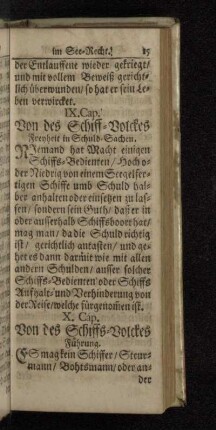 im See-Recht. 85
der Entlauffene wieder gekriegt/
und mit vollem Beweiß gericht-
lich überwunden/ so hat er sein Le-
ben verwircket.
IX. Cap.
Von des Schiff-Volckes
Freyheit in Schuld-Sachen.
NIemand hat Macht einigen
Schiffs-Bedienten/ Hoch o-
der Niedrig von einem Seegelfer-
tigen Schiffe umb Schuld hal-
ber anhalten oder einsetzen zu las-
sen/ sondern sein Guth/ daß er in
oder ausserhalb Schiffsboort hat/
mag man/ da die Schuld richtig
ist/ gerichtlich antasten/ und ge-
het es dann darmit wie mit allen
andern Schulden/ ausser solcher
Schiffs-Bedienten oder Schiffs
Auffhalt- und Verhinderung von
der Reise/ welche fürgenommen ist.
X. Cap.
Von des Schiffs-Volckes
Führung.
ES mag kein Schiffer/ Steur-
mann/ Bohtsmann/ oder an-
der